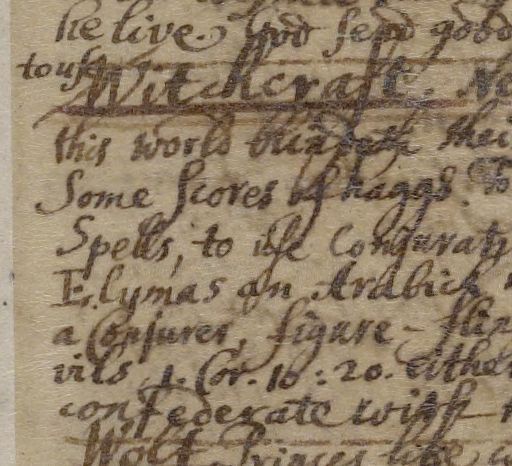 he live. God send good
to use
Witchcraft. No
this world blindeth thei
Some scores of haggs. To
Spells, to use Conjurati
Elymas an Arabick
a Conjurer, figure-flin
vils, 1. Cor. 10 : 20. either
confederate with
Wolf. Princes like